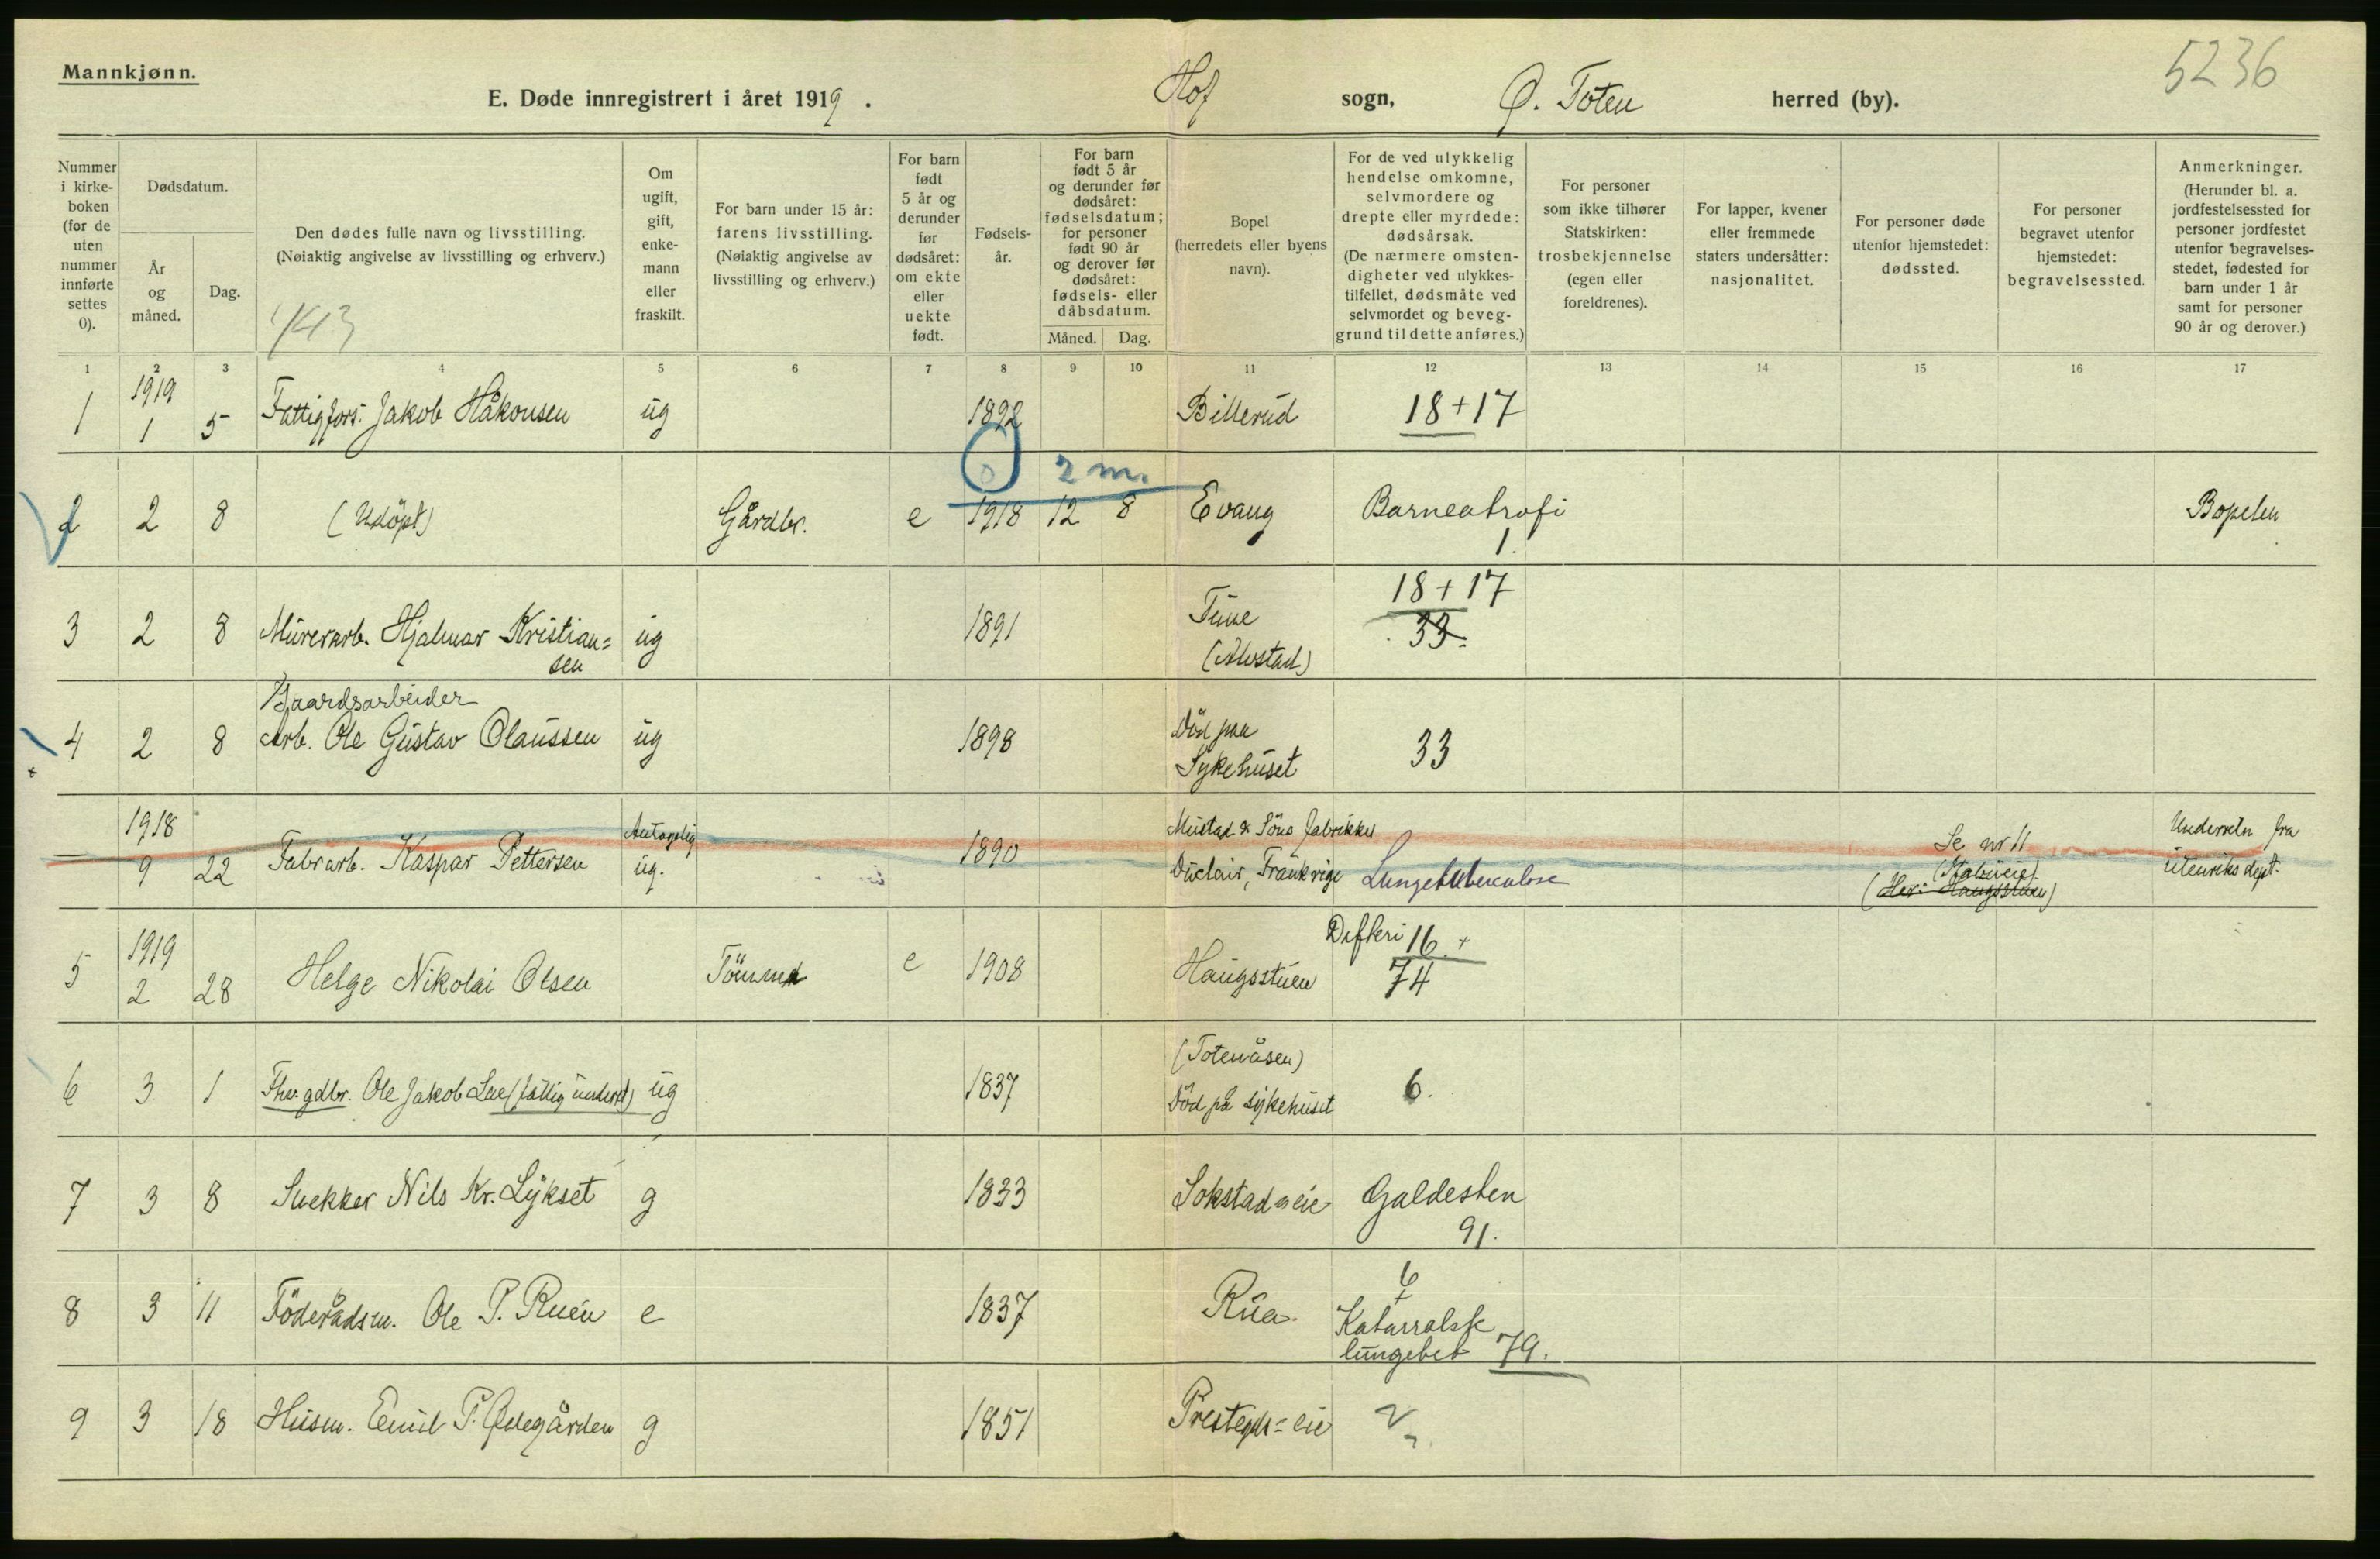 Mannkjønn.
5236
E. Døde innregistrert i året 1919. Hof sogn, Ø. Toten herred (by).
Nummer i kirke- boken (for de uten nummer innførte settes 0).
Dødsdatum.
År og måned.
Dag.
Den dødes fulle navn og livsstilling.
(Nøiaktig angivelse av livsstilling og erhverv.)
443
Om ugift, gift, enke- mann eller fraskilt.
For barn under 15 år: farens livsstilling.
(Nøiaktig angivelse av livsstilling og erhverv.)
For barn født 5 år og derunder før dødsåret: om ekte eller uekte født.
Fødsels- år.
For barn født 5 år og derunder før dødsåret: fødselsdatum; for personer født 90 år og derover før dødsåret: fødsels- eller dåbsdatum.
Måned. Dag.
Bopel (herredets eller byens navn).
For de ved ulykkelig hendelse omkomne, selvmordere og drepte eller myrdede: dødsårsak.
(De nærmere omsten- digheter ved ulykkes- tilfellet, dødsmåte ved selvmordet og beveg- grund til dette anføres.)
For personer som ikke tilhører Statskirken: trosbekjennelse (egen eller foreldrenes).
For lapper, kvener eller fremmede staters undersåtter: nasjonalitet.
For personer døde utenfor hjemstedet: dødssted.
For personer begravet utenfor hjemstedet: begravelsessted.
Anmerkninger.
(Herunder bl. a. jordfestelsessted for personer jordfestet utenfor begravelses- stedet, fødested for barn under 1 år samt for personer 90 år og derover.)
1 2 3 4 5 6 7 8 9 10 11 12 13 14 15 16 17
1919
1 1 5 Fattigfors. Jakob Håkonsen ug 1892 Billerud 18+17
0 2 m.
2 2 8 (Udöpt) Gårdbr. e 1918 12 8 Evang Barneatrofi Bopelen
1.
18+17
3 2 8 Murerarb. Hjalmar Kristian= ug 1891 Tune 33.
sen (Alvstad)
Gaardsarbeider
4 2 8 Arb. Ole Gustav Olaussen ug 1898 Död paa 33
Sykehuset
1918 Antagelig Mustad & Söns fabrikker Se nr 11 Underretn fra
9 22 Fabrarb. Kaspar Pettersen ug. 1890 Duclair, Frankrige Lungetuberculose utenriks dept.
(Her: Haugsstuen)
1919 Difteri 16. +
5 2 28 Helge Nikolai Olsen e 1908 Haugsstuen 74
(Totenåsen)
6 3 1 Fhv. gdbr. Ole Jakob Lae (fattig underst) ug 1837 Död på sykehuset 6.
7 3 8 Snekker Nils Kr. Lykset g 1833 Sokstad eie Galdesten
91.
6
+
8 3 11 Föderådsm. Ole P. Ruen e 1837 Rua. Katarralsk
lungebet 79.
9 3 18 Husm. Emil P. Ödegården g 1851 Prestegds=eie